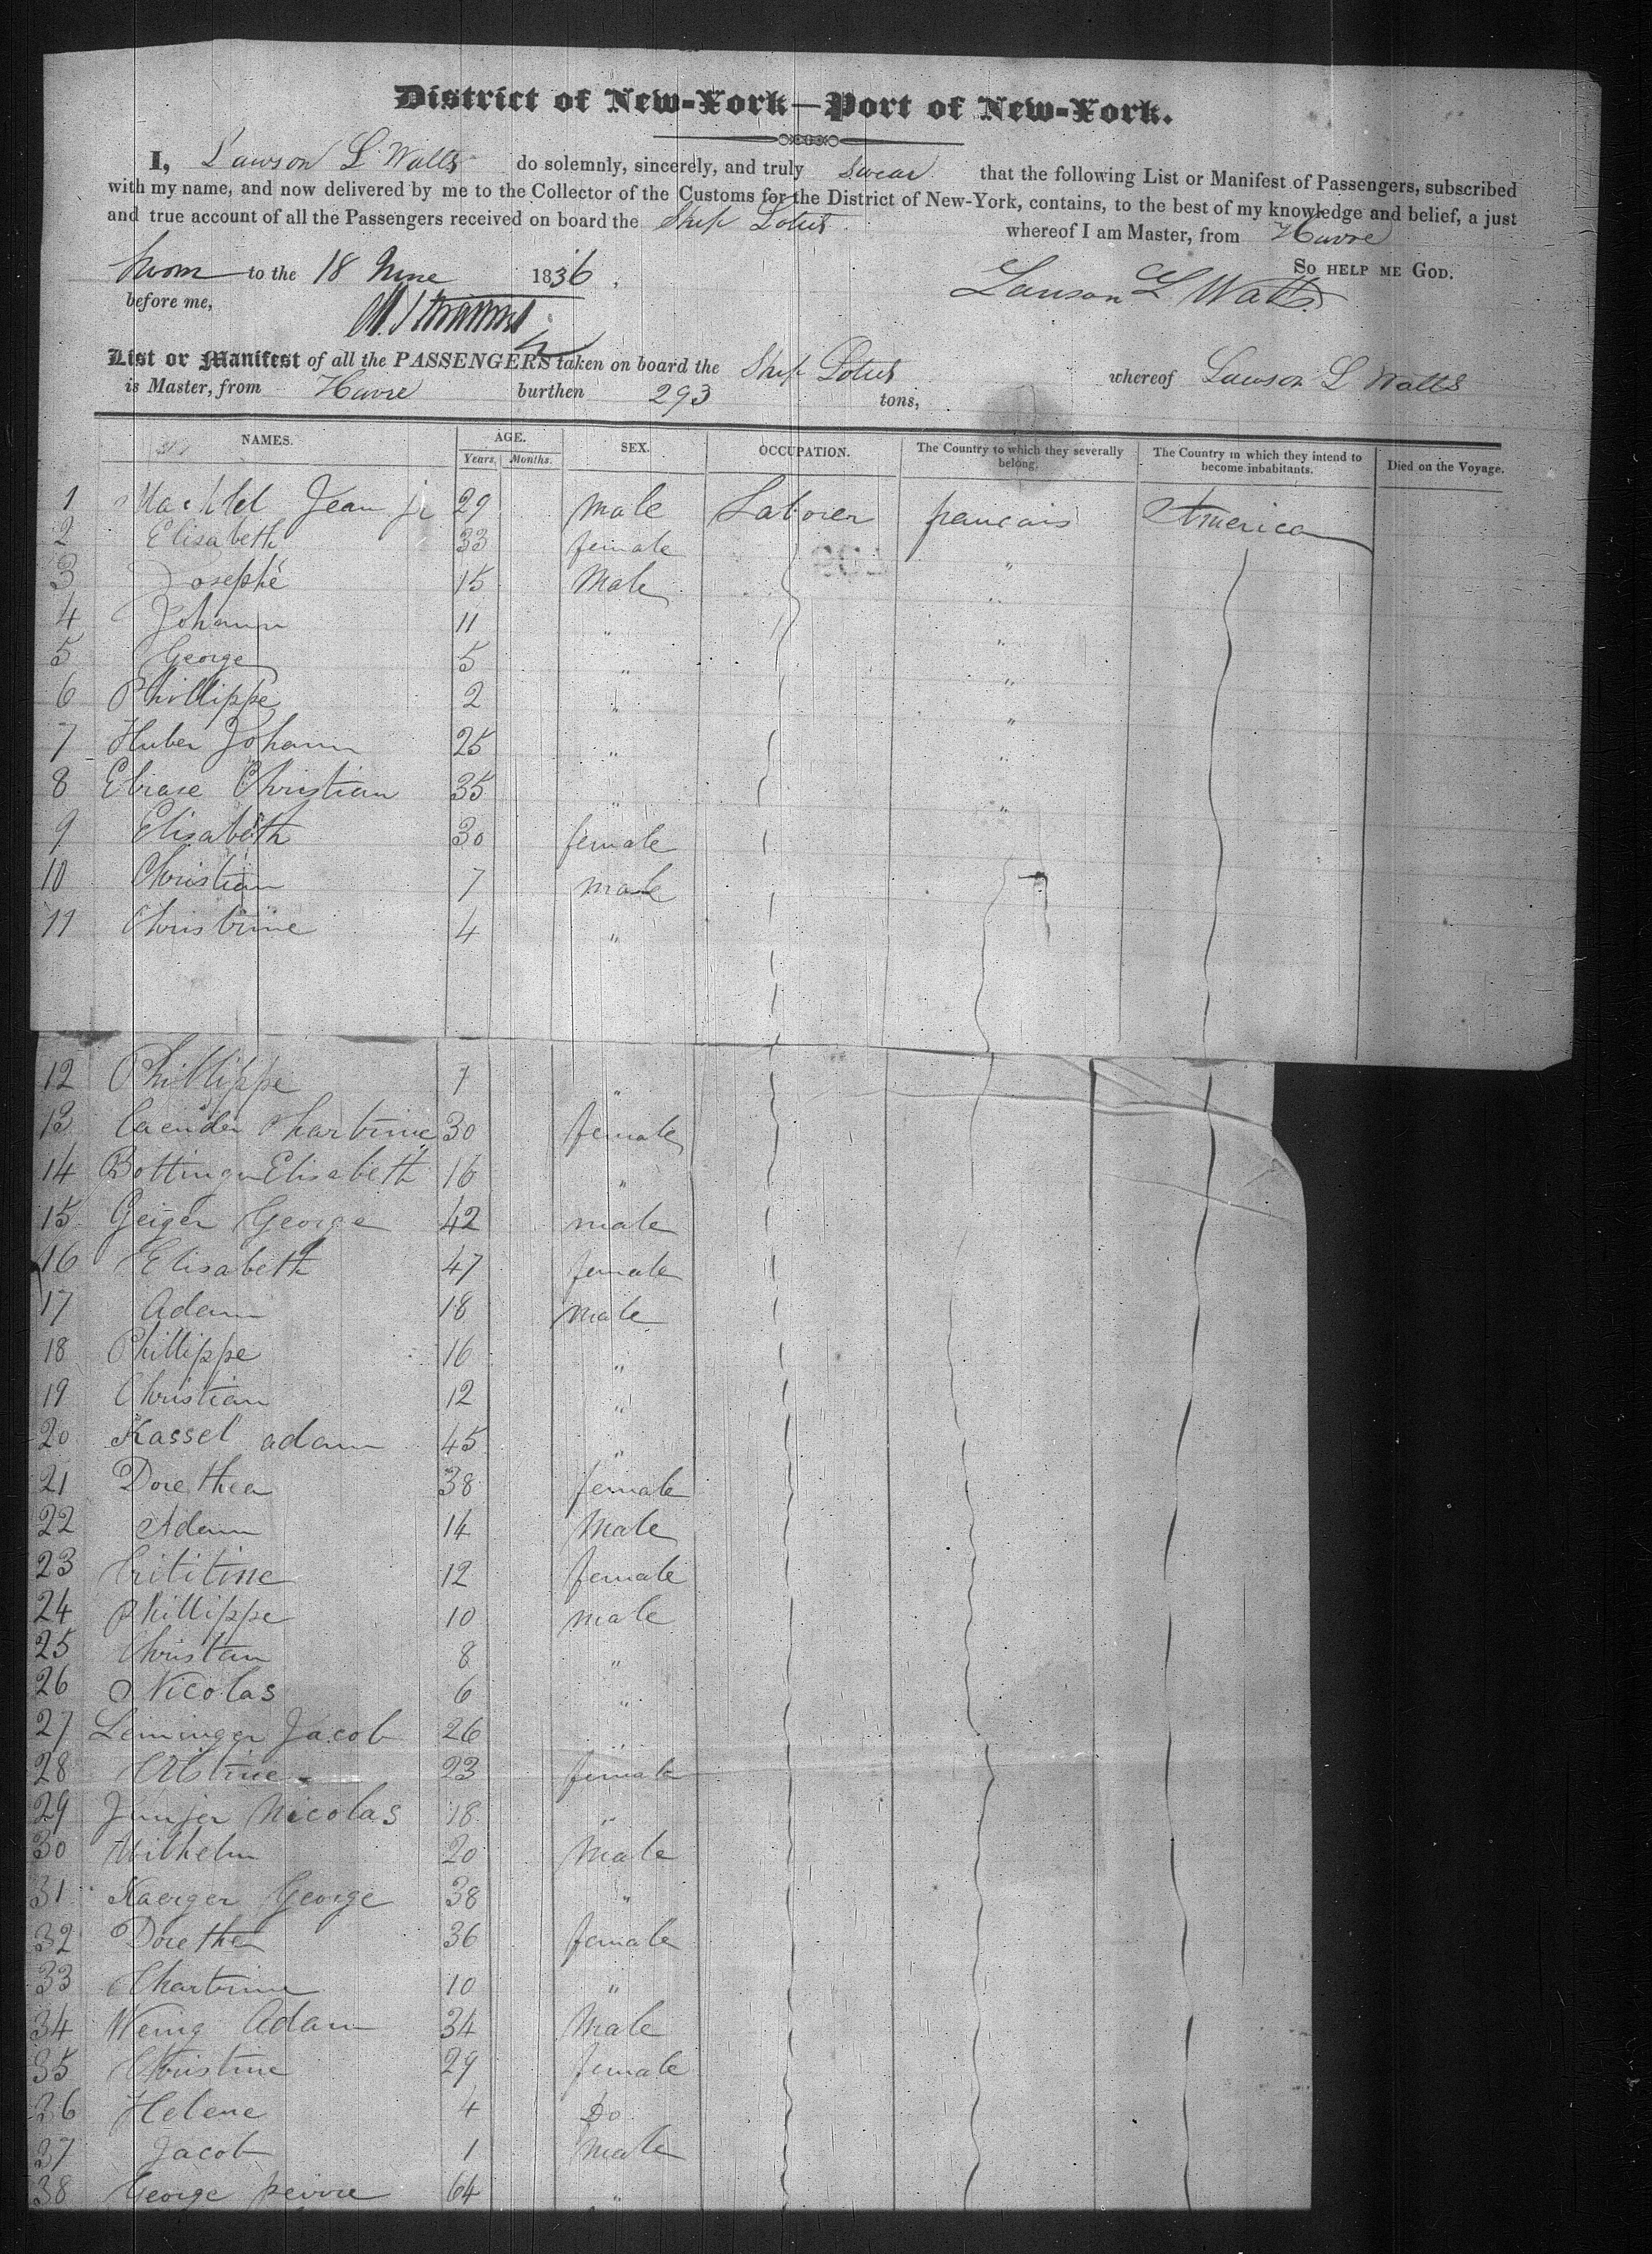 District of New-York—Port of New-York.
I, Lawson L Watts do solemnly, sincerely, and truly swear that the following List or Manifest of Passengers, subscribed
with my name, and now delivered by me to the Collector of the Customs for the District of New-York, contains, to the best of my knowledge and belief, a just
and true account of all the Passengers received on board the Ship Lotus whereof I am Master, from Havre
So HELP ME GOD.
Sworn to the 18 June 1836.
before me,
Lawson L Watts
List or Manifest of all the PASSENGERS taken on board the Ship Lotus whereof Lawson L Watts
is Master, from Havre burthen 293 tons,
NAMES. AGE. SEX. OCCUPATION. The Country to which they severally belong. The Country in which they intend to become inhabitants. Died on the Voyage.
Years, Months.
1 Jean jr 29 male Laborer francais America
2 Elisabeth 33 female
3 Josephé 15 Male "
4 Johann 11 " "
5 George 5 " "
6 Phillippe 2 " "
7 Huber Johann 25 " "
8 Christian 35 " "
9 Elisabeth 30 female "
10 Christian 7 male
11 Christine 4 "
12 Phillippe 7 "
13 30 female
14 Elisabeth 16 "
15 Geiger George 42 male
16 Elisabeth 47 female
17 Adam 18 male
18 Phillippe 16 "
19 Christian 12 "
20 Kassel adam 45 "
21 Dorethea 38 female
22 Adam 14 Male
23 12 female
24 Phillippe 10 male
25 Christian 8 "
26 Nicolas 6 "
27 Leininger Jacob 26 "
28 23 female
29 Junjer Nicolas 18 "
30 Wilhelm 20 Male
31 Kaerger George 38 "
32 Dorethea 36 female
33 10 "
34 Wenig Adam 34 Male
35 Christine 29 female
36 Helene 4 Do
37 Jacob 1 male
38 George 64 "